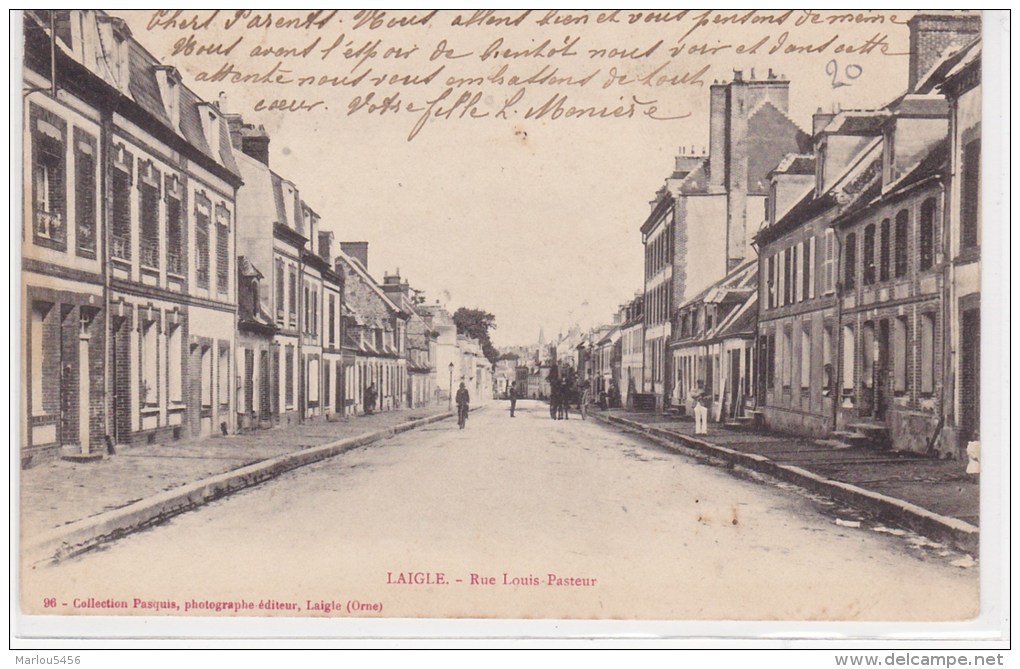 Chers Parents. Nous allons bien et vous pensons de même
Nous avons l'espoir de bientôt nous voir et dans cette
attente nous vous embrassons de tout
cœur. Votre fille L. Monière
20
LAIGLE. - Rue Louis-Pasteur
96 - Collection Pasquis, photographe-éditeur, Laigle (Orne)
Marlou5456
www.delcampe.net